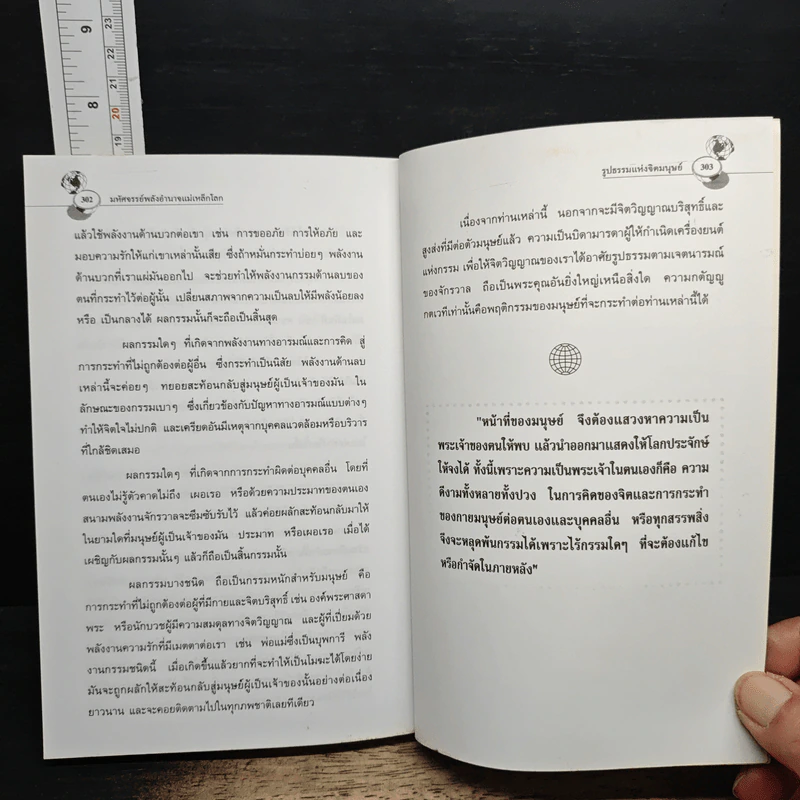 9
8
23
22
21
20
19
302 มหัศจรรย์พลังอำนาจแม่เหล็กโลก
แล้วใช้พลังงานด้านบวกต่อเขา เช่น การขออภัย การให้อภัย และ
มอบความรักให้แก่เขาเหล่านั้นเสีย ซึ่งถ้าหมั่นกระทำบ่อยๆ พลังงาน
ด้านบวกที่เราแผ่มันออกไป จะช่วยทำให้พลังงานกรรมด้านลบของ
ตนที่กระทำไว้ต่อผู้นั้น เปลี่ยนสภาพจากความเป็นลบให้มีพลังน้อยลง
หรือ เป็นกลางได้ ผลกรรมนั้นก็จะถือเป็นสิ้นสุด
ผลกรรมใดๆ ที่เกิดจากพลังงานทางอารมณ์และการคิด สู่
การกระทำที่ไม่ถูกต้องต่อผู้อื่น ซึ่งกระทำเป็นนิสัย พลังงานด้านลบ
เหล่านี้จะค่อยๆ ทยอยสะท้อนกลับสู่มนุษย์ผู้เป็นเจ้าของมัน ใน
ลักษณะของกรรมเบาๆ ซึ่งเกี่ยวข้องกับปัญหาทางอารมณ์แบบต่างๆ
ทำให้จิตใจไม่ปกติ และเครียดอันมีเหตุจากบุคคลแวดล้อมหรือบริวาร
ที่ใกล้ชิดเสมอ
ผลกรรมใดๆ ที่เกิดจากการกระทำผิดต่อบุคคลอื่น โดยที่
ตนเองไม่รู้ตัวคาดไม่ถึง เผอเรอ หรือด้วยความประมาทของตนเอง
สนามพลังงานจักรวาลจะซึมซับรับไว้ แล้วค่อยผลักสะท้อนกลับมาให้
ในยามใดที่มนุษย์ผู้เป็นเจ้าของมัน ประมาท หรือเผอเรอ เมื่อได้
เผชิญกับผลกรรมนั้นๆ แล้วก็ถือเป็นสิ้นกรรมนั้น
ผลกรรมบางชนิด ถือเป็นกรรมหนักสำหรับมนุษย์ คือ
การกระทำที่ไม่ถูกต้องต่อผู้ที่มีกายและจิตบริสุทธิ์ เช่น องค์พระศาสดา
พระ หรือนักบวชผู้มีความสมดุลทางจิตวิญญาณ และผู้ที่เปี่ยมด้วย
พลังงานความรักที่มีเมตตาต่อเรา เช่น พ่อแม่ซึ่งเป็นบุพการี พลัง
งานกรรมชนิดนี้ เมื่อเกิดขึ้นแล้วยากที่จะทำให้เป็นโมฆะได้โดยง่าย
มันจะถูกผลักให้สะท้อนกลับสู่มนุษย์ผู้เป็นเจ้าของนั้นอย่างต่อเนื่อง
ยาวนาน และจะคอยติดตามไปในทุกภพชาติเลยทีเดียว
รูปธรรมแห่งจิตมนุษย์ 303
เนื่องจากท่านเหล่านี้ นอกจากจะมีจิตวิญญาณบริสุทธิ์และ
สูงส่งที่มีต่อตัวมนุษย์แล้ว ความเป็นบิดามารดาผู้ให้กำเนิดเครื่องยนต์
แห่งกรรม เพื่อให้จิตวิญญาณของเราได้อาศัยรูปธรรมตามเจตนารมณ์
ของจักรวาล ถือเป็นพระคุณอันยิ่งใหญ่เหนือสิ่งใด ความกตัญญู
กตเวทีเท่านั้นคือพฤติกรรมของมนุษย์ที่จะกระทำต่อท่านเหล่านี้ได้
"หน้าที่ของมนุษย์ จึงต้องแสวงหาความเป็น
พระเจ้าของตนให้พบ แล้วนำออกมาแสดงให้โลกประจักษ์
ให้จงได้ ทั้งนี้เพราะความเป็นพระเจ้าในตนเองก็คือ ความ
ดีงามทั้งหลายทั้งปวง ในการคิดของจิตและการกระทำ
ของกายมนุษย์ต่อตนเองและบุคคลอื่น หรือทุกสรรพสิ่ง
จึงจะหลุดพ้นกรรมได้เพราะไร้กรรมใดๆ ที่จะต้องแก้ไข
หรือกำจัดในภายหลัง"